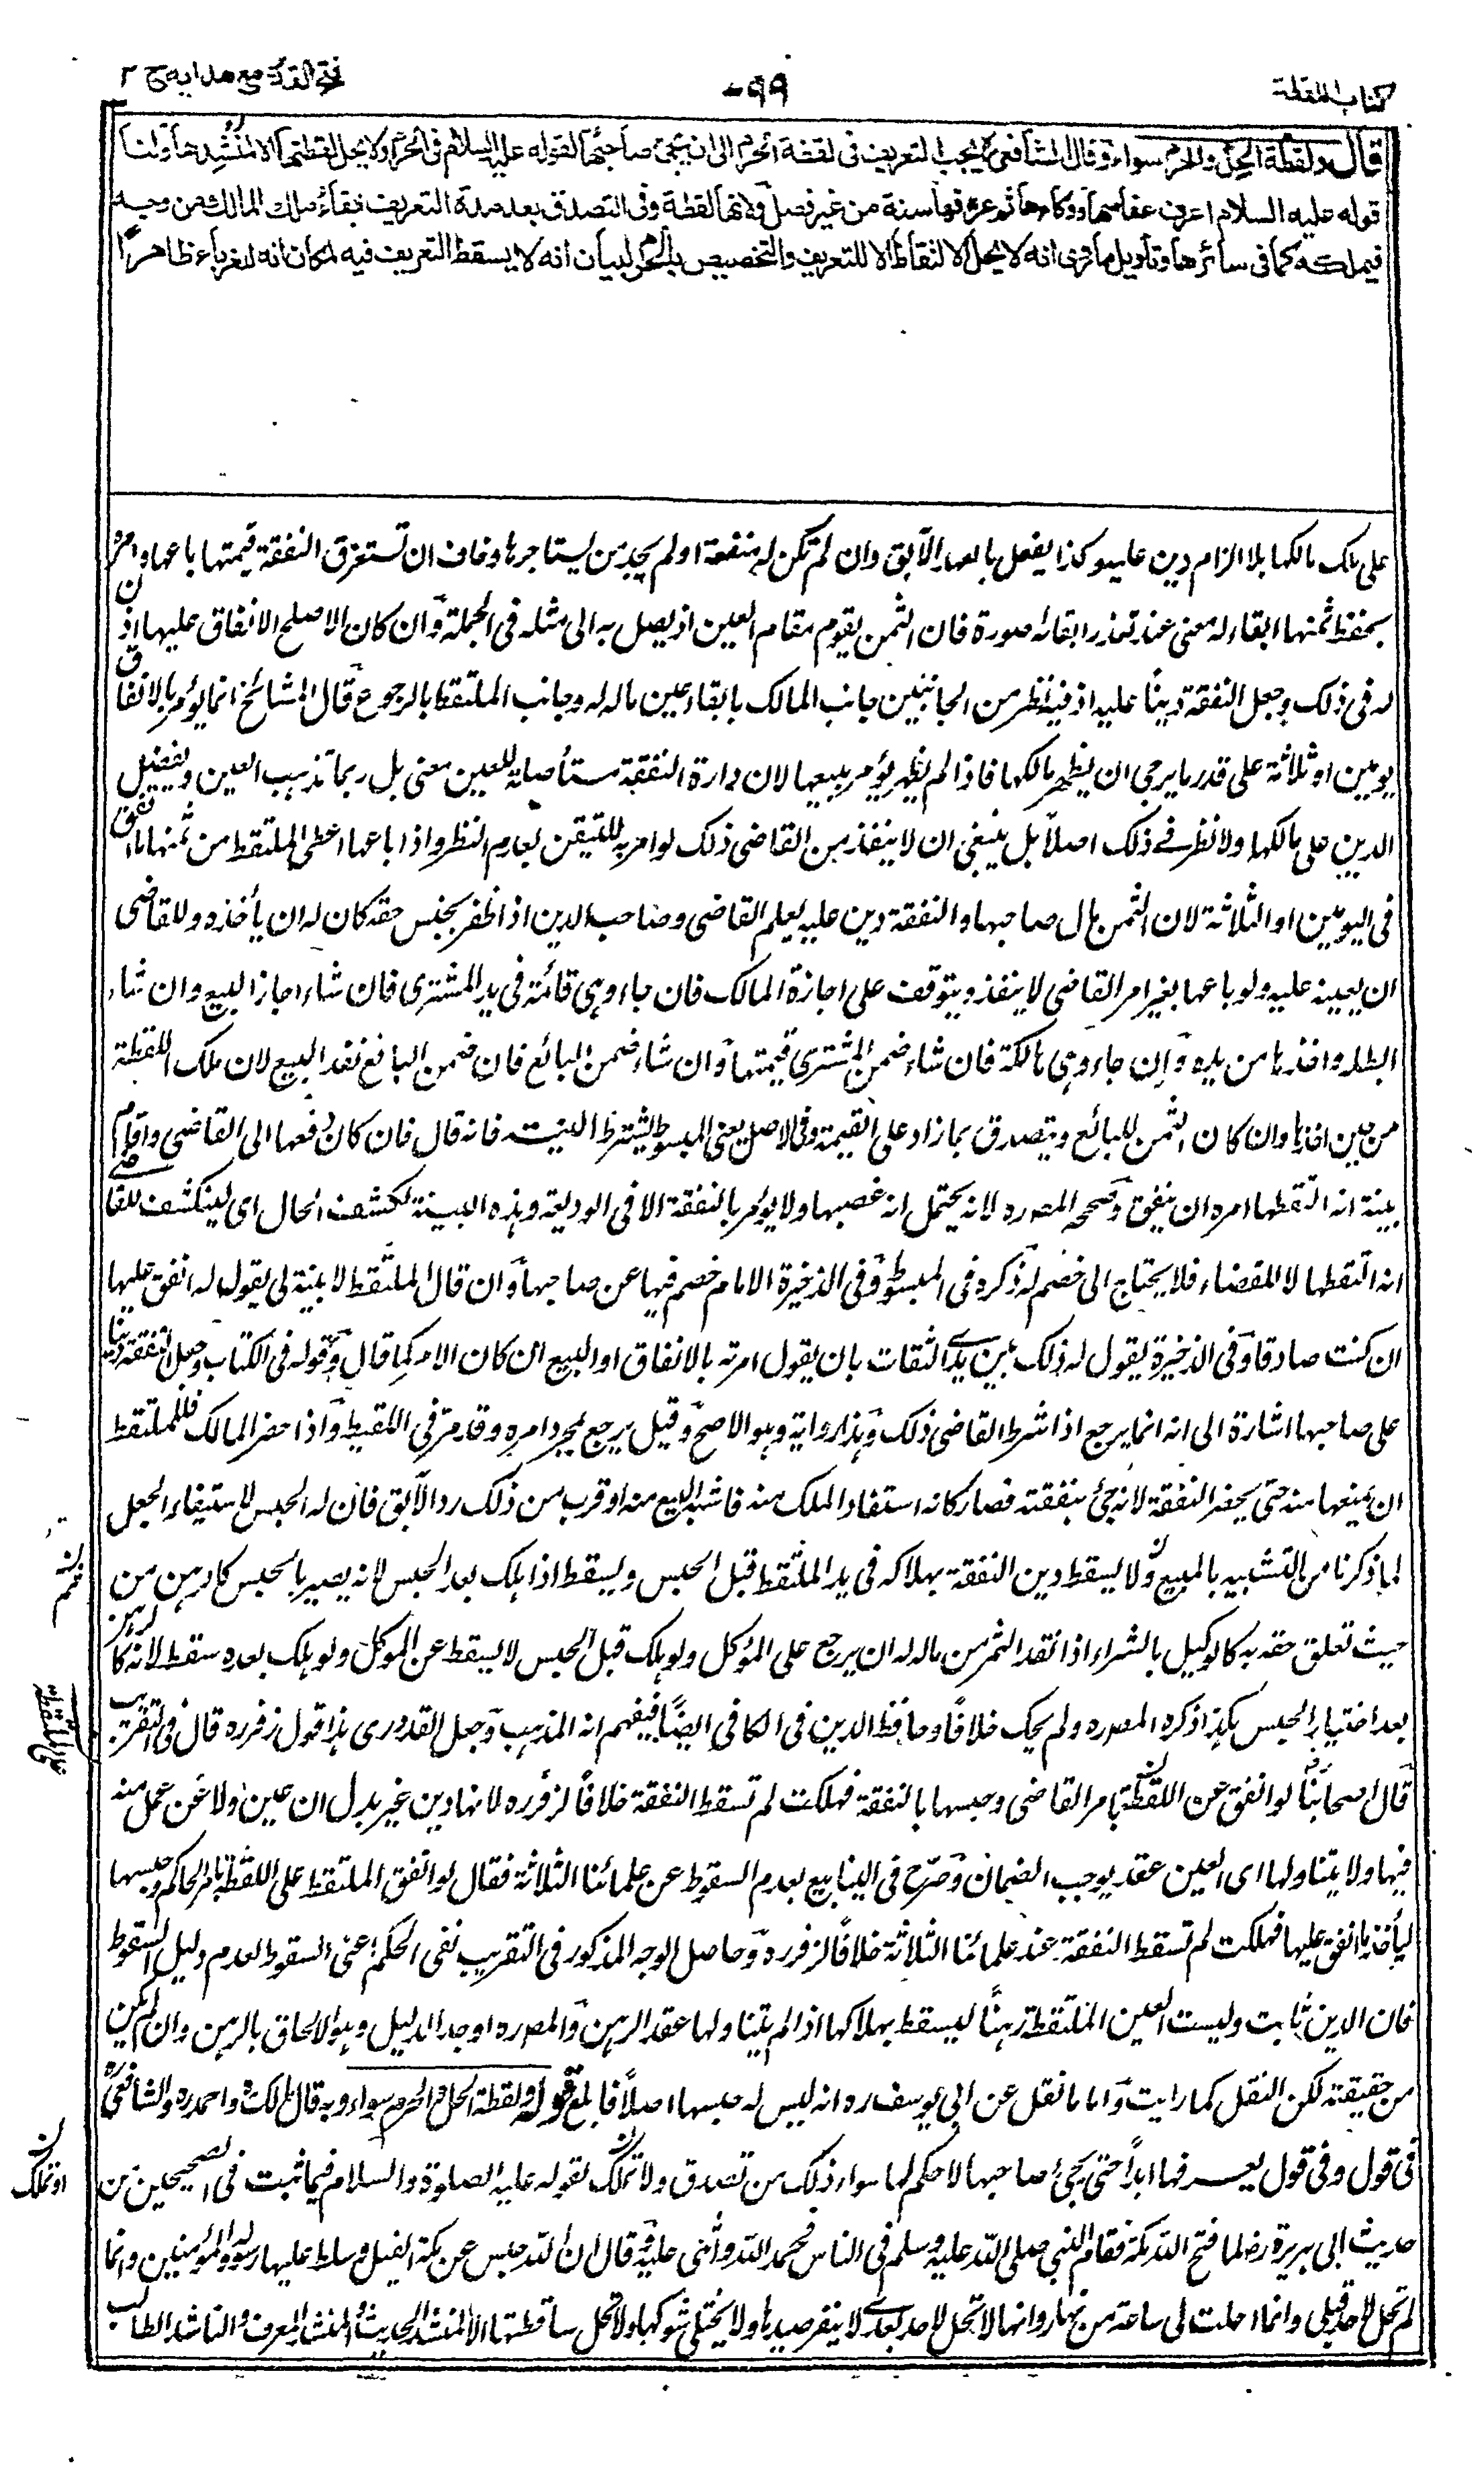 كتاب اللقطة
٦٩٩
فتح القدير مع هدايه ج ٢
قال ولقطة الحل والحرم سواء وقال الشافعي يجب التعريف في لقطة الحرم الى ان يجيئ صاحبها لقوله عليه السلام في الحرم ولا يحل لقطتها الا لمنشدها ولنا
قوله عليه السلام اعرف عفاصها ووكاءها ثم عرفها سنة من غير فصل ولانها لقطة وفي التصدق بعد مدة التعريف ابقاء ملك المالك من وجه
فيملكه كما في سائرها وتاويل ما روى انه لا يحل الالتقاط الا للتعريف والتخصيص بالحرم لبيان انه لا يسقط التعريف فيه لمكان انه للغرباء ظاهرا
على ملك مالكها بلا الزام دين عليه وكذا يفعل بالعبد الآبق وان لم تكن له منفعة اولم يجد من يستاجرها وخاف ان تستغرق النفقة قيمتها باعها وامره
بحفظ ثمنها ابقاء له معنى عند تعذر ابقائه صورة فان الثمن يقوم مقام العين اذ يصل به الى مثله في الجملة وان كان الاصلح الانفاق عليها اذن
له في ذلك وجعل النفقة دينا عليه اذ فيه نظر من الجانبين جانب المالك بابقاء عين ماله له وجانب الملتقط بالرجوع قال المشائخ انما يؤمر بالانفاق
يومين او ثلاثة على قدر ما يرجى ان يظهر مالكها فاذا لم يظهر يؤمر ببيعها لان دارة النفقة مستأصلة للعين معنى بل ربما تذهب العين ويفضل
الدين على مالكها ولا نظر في ذلك اصلا بل ينبغي ان لا ينفذ من القاضي ذلك لو امر به للتيقن بعدم النظر واذا باعها اعطى الملتقط من ثمنها ما انفق
في اليومين او الثلاثة لان الثمن مال صاحبها والنفقة دين عليه بعلم القاضي وصاحب الدين اذا ظفر بجنس حقه كان له ان يأخذه وللقاضي
ان يعينه عليه ولو باعها بغير امر القاضي لا ينفذ ويتوقف على اجازة المالك فان جاء وهي قائمة في يد المشتري فان شاء اجاز البيع وان شاء
ابطله واخذها من يده وان جاء وهي هالكة فان شاء ضمن المشتري قيمتها وان شاء ضمن البائع فان ضمن البائع نفذ البيع لان ملك اللقطة
من حين اخذها وان كان الثمن للبائع ويتصدق بما زاد على القيمة وفي الاصل يعني المبسوط يشترط البينة فانه قال فان كان دفعها الى القاضي واقام
بينة انه التقطها امره ان ينفق وصححه المصره لانه يحتمل انه غصبها ولا يؤمر بالنفقة الا في الوديعة وهذه البينة لكشف الحال اي لينكشف للقاضي
انه التقطها لا للقضاء فلا يحتاج الى خصم له ذكره في المبسوط وفي الذخيرة الامام خصم فيها عن صاحبها وان قال الملتقط لا بينة لي يقول له انفق عليها
ان كنت صادقا وفي الذخيرة يقول له ذلك بين يدي الثقات بان يقول امرته بالانفاق او البيع ان كان الامر كما قال وقوله في الكتاب وجعل النفقة دينا
على صاحبها اشارة الى انه انما يرجع اذا شرط القاضي ذلك وهذا رواية وهو الاصح وقيل يرجع بمجرد امره وقد مر في اللقيط واذا حضر المالك فللملتقط
ان يمنعها منه حتى يحضر النفقة لانه حيي بنفقته فصار كانه استفاد الملك منه فاشبه البيع منه او قرب من ذلك رد الآبق فان له الحبس لاستيفاء الجعل
لما ذكرنا من التشبيه بالمبيع ولا يسقط دين النفقة بهلاكه في يد الملتقط قبل الحبس ويسقط اذا هلك بعد الحبس لانه يصير بالحبس كالرهن من
حيث تعلق حقه به كالوكيل بالشراء اذا نقد الثمن من ماله له ان يرجع على المؤكل ولو هلك قبل الحبس لا يسقط عن الموكل ولو هلك بعده سقط لانه كالرهن
بعد اختيار الحبس هكذا ذكره المصره ولم يحك خلافا وحافظ الدين في الكافي ايضا فيفهم انه المذهب وجعل القدوري هذا قول زفر ره قال في التقريب
قال اصحابنا لو انفق عن اللقطة بامر القاضي وحبسها بالنفقة فهلكت لم تسقط النفقة خلافا لزفر ره لانها دين غير بدل ان عين ولا عن عمل منه
فيها ولا يتناولها اى العين عقد يوجب الضمان وصرح في الينابيع بعدم السقوط عن علمائنا الثلاثة فقال لو انفق الملتقط على اللقطة بامر الحاكم وحبسها
ليأخذ ما انفق عليها فهلكت لم تسقط النفقة عند علمائنا الثلاثة خلافا لزفر ره وحاصل الوجه المذكور في التقريب نفي الحكم اعني السقوط لعدم دليل السقوط
فان الدين ثابت وليست العين الملتقطة رهنا ليسقط بهلاكها اذا لم يتناولها عقد الرهن والمصره اوجد الدليل وهو الالحاق بالرهن وان لم يكن
من حقيقته لكن النقل كما رايت واما ما نقل عن ابي يوسف ره انه ليس له حبسها اصلا فابلغ قوله ولقطة الحل والحرم سواء وبه قال مالك ره واحمد ره والشافعي ره
في قول وفي قول يعرفها ابدا حتى يجيئ صاحبها لا حكم لها سواء ذلك من تصدق ولا تملك لقوله عليه الصلوة والسلام فيما ثبت في الصحيحين من
او تملك
حديث ابى هريرة رض لما فتح الله مكة فقام النبي صلى الله عليه وسلم في الناس فحمد الله واثنى عليه وقال ان الله حبس عن مكة الفيل وسلط عليها رسوله والمؤمنين وانها
لم تحل لاحد قبلي وانما احلت لي ساعة من نهار وانها لا تحل لاحد بعدي لا ينفر صيدها ولا يختلى شوكها ولا تحل ساقطتها الا لمنشد الحديث والمنشد المعرف والناشد الطالب